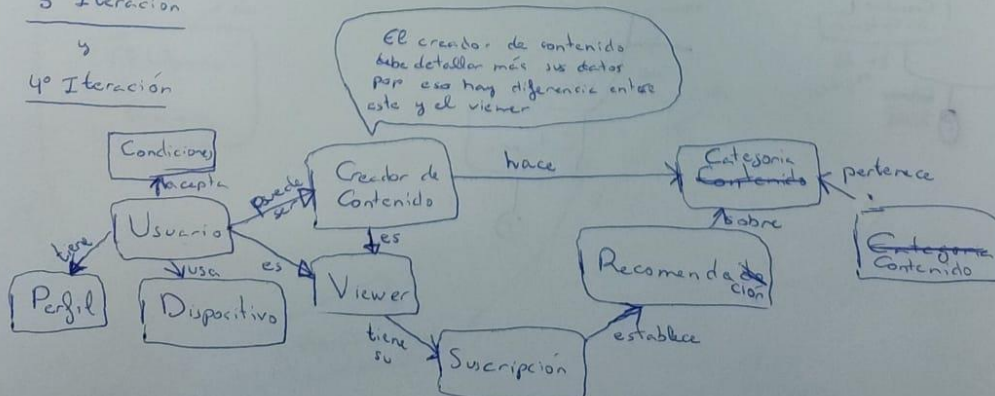 3º Iteración
y
4º Iteración
El creador de contenido
debe detallar más sus datos
por eso hay diferencia entre
este y el viewer
Condiciones
acepta
Usuario
tiene
Perfil
usa
Dispositivo
puede
ser
es
Creador de
Contenido
es
Viewer
tiene
su
Suscripción
establece
Recomenda
ción
sobre
hace
Categoria
Contenido
pertenece
Categoria
Contenido